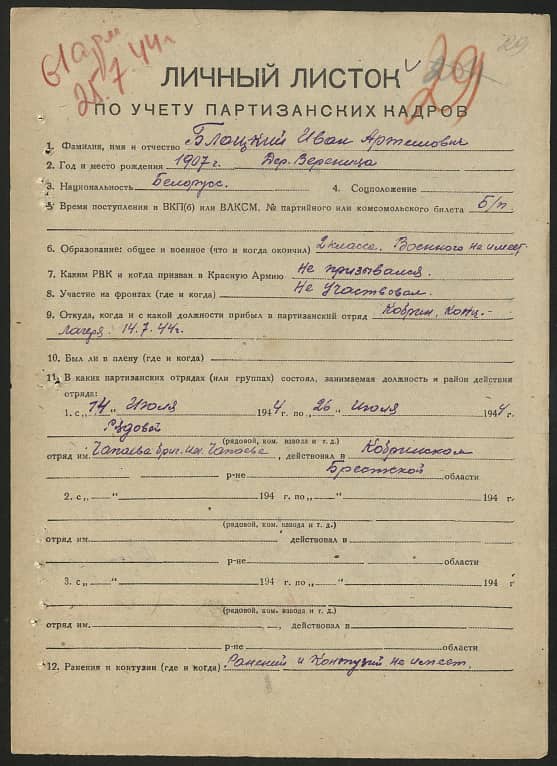 61 арм
25.7.44 г
29
29
ЛИЧНЫЙ ЛИСТОК
ПО УЧЕТУ ПАРТИЗАНСКИХ КАДРОВ
1. Фамилия, имя и отчество Блоцкий Иван Артемович
2. Год и место рождения 1907 г. Дер. Вереница
3. Национальность Белорус. 4. Соцположение
5. Время поступления в ВКП(б) или ВЛКСМ, № партийного или комсомольского билета Б/п
6. Образование: общее и военное (что и когда окончил) 2 класса. Военного не имеет
7. Каким РВК и когда призван в Красную Армию Не призывался.
8. Участие на фронтах (где и когда) Не участвовал.
9. Откуда, когда и с какой должности прибыл в партизанский отряд Кобрин, Конц-
Лагеря 14.7.44 г.
10. Был ли в плену (где и когда)
11. В каких партизанских отрядах (или группах) состоял, занимаемая должность и район действия
отряда:
1. с „14“ Июля 1944 г. по „26“ июля 1944 г.
Рядовой
(рядовой, ком. взвода и т. д.)
отряд им. Чапаева бриг. им. Чапаева, действовал в Кобринском
р-не Брестской области
2. с „ “ 194 г. по „ “ 194 г.
(рядовой, ком. взвода и т. д.)
отряд им. действовал в
р-не области
3. с „ “ 194 г. по „ “ 194 г
(рядовой, ком. взвода и т. д.)
отряд им. , действовал в
р-не области
12. Ранения и контузии (где и когда) Ранений и Контузий не имеет.